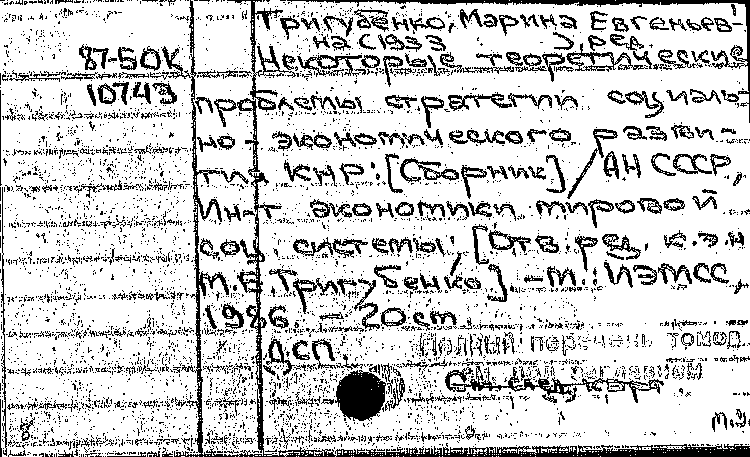 Тригубенко, Марина Евгеньев-
на (1933 ), ред.
87-5ОК Некоторые теоретические
10743 проблемы стратегии социаль-
но-экономического разви-
тия КНР: [Сборник] / АН СССР,
Ин-т экономики мировой
соц. системы; [Отв. ред. к.э.н
М.Е. Тригубенко]. - М.: ИЭМСС,
1986. - 20 cm.
ДСП. Полный перечень томов
см. под заглавием
См. след. карт